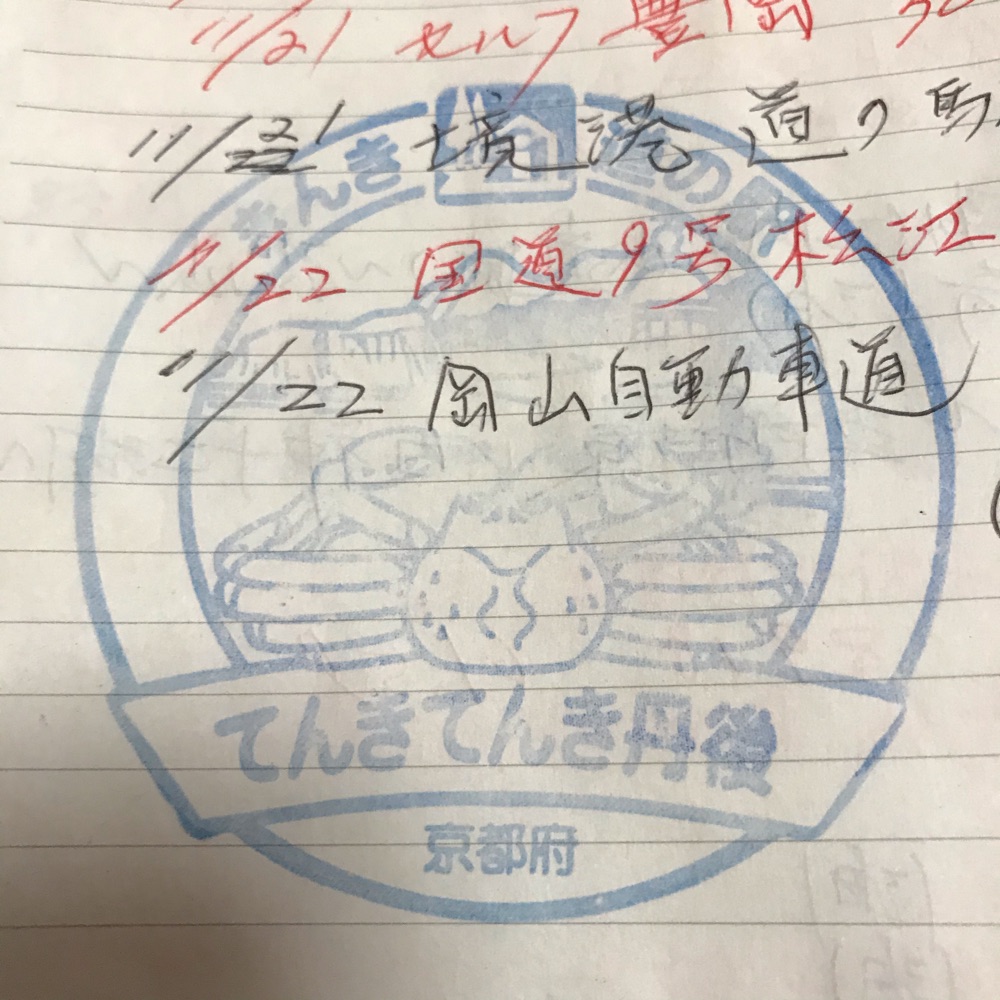 11/21 セルフ 豊岡
11/21 境港 道の駅
11/22 国道9号 松江
11/22 岡山自動車道
きんき 道の駅
てんきてんき丹後
京都府